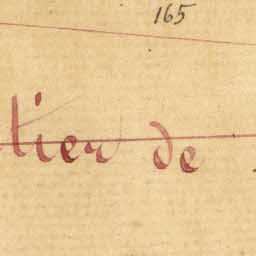 165
tier de